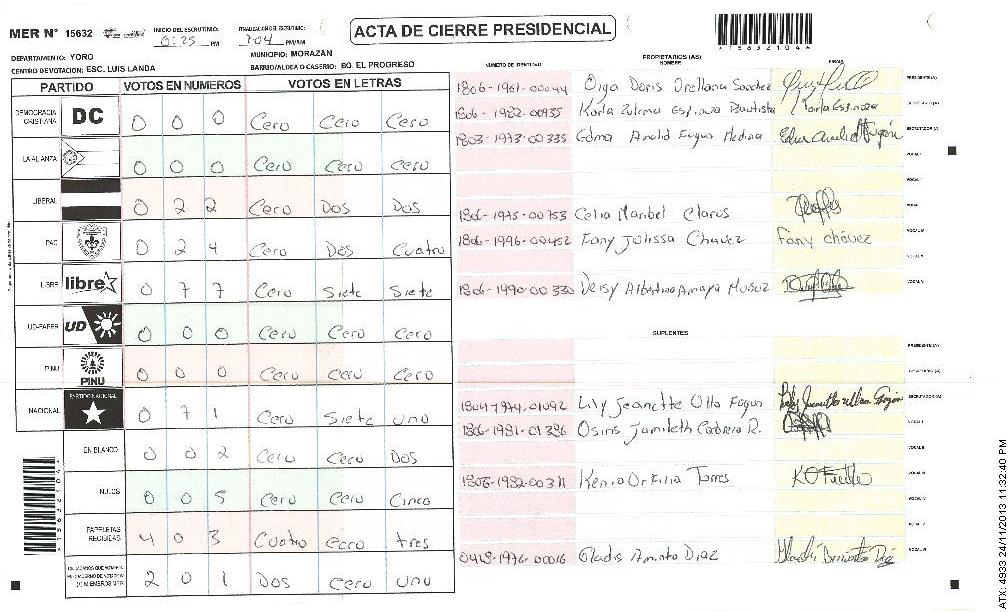 MER N° 15632
INICIO DEL ESCRUTINIO: PM
FINALIZACION DEL ESCRUTINIO: 7:04 PM/AM
ACTA DE CIERRE PRESIDENCIAL
DEPARTAMENTO: YORO
MUNICIPIO: MORAZAN
CENTRO DEVOTACION: ESC. LUIS LANDA
BARRIO/ALDEA O CASERIO: BO. EL PROGRESO
PARTIDO VOTOS EN NUMEROS VOTOS EN LETRAS
DEMOCRACIA CRISTIANA DC 0 0 0 Cero Cero Cero
LA ALIANZA 0 0 0 Cero Cero Cero
LIBERAL 0 2 2 Cero Dos Dos
PAC 0 2 4 Cero Dos Cuatro
LIBRE libre 0 7 7 Cero Siete Siete
UD-FAPER UD 0 0 0 Cero Cero Cero
PINU PINU 0 0 0 Cero Cero Cero
NACIONAL PARTIDO NACIONAL 0 7 1 Cero Siete uno
EN BLANCO 0 0 2 Cero Cero Dos
NULOS 0 0 5 Cero Cero Cinco
PAPELETAS RECIBIDAS 4 0 3 Cuatro cero tres
2 0 1 Dos cero uno
PROPIETARIOS (AS)
NUMERO DE IDENTIDAD NOMBRE FIRMA
1806-1961-00044 Olga Doris Orellana Sanchez PRESIDENTE(A)
1806-1982-00935 Karla Zulema Espinoza Bautista Karla Espinoza SECRETARIO(A)
1803-1973-00335 Edma Arnold Fugon Medina ESCRUTADOR (A)
VOCAL I
VOCAL II
1806-1975-00753 Celia Maribel Claros
1806-1996-00452 Fany Julissa Chavez Fany chávez
1806-1990-00330 Deisy Albertina Amaya Muñoz
SUPLENTES
PRESIDENTE (A)
SECRETARIO (A)
1804-1974-01092 Lily Jeanette Ulloa Fugon ESCRUTADOR (A)
1806-1981-01386 Osiris Jamileth Cabrera R. VOCAL I
VOCAL II
Kenia Orfilia Torres
VOCAL IV
VOCAL V
Gladis Aminta Diaz VOCAL VI
15632104
ATX: 4933 24/11/2013 11:32:40 PM